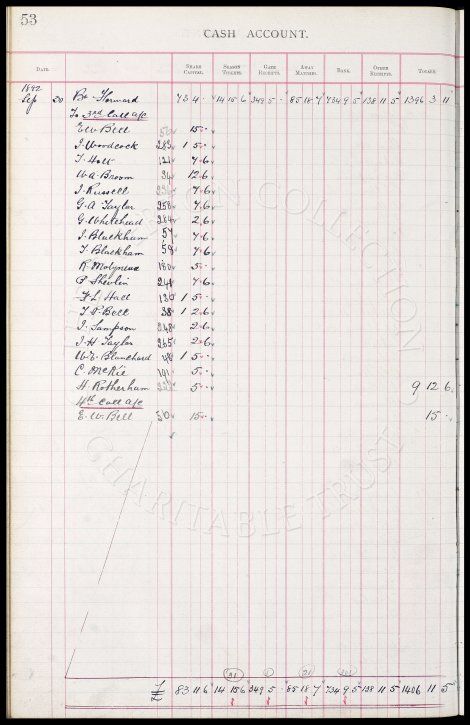 53
CASH ACCOUNT.
DATE. SHARE CAPITAL. SEASON TICKETS. GATE RECEIPTS. AWAY MATCHES. BANK. OTHER RECEIPTS. TOTALS.
1892
Sep 20 Bt Forward 73 4 - 14 15 6 349 5 - 85 18 7 734 9 5 138 11 5 1396 3 11
To 3rd Call a/c
E W Bell 50 15 -
J. Woodcock 283 1 5 -
T. Holt 121 7 6
W A Broom 34 12 6
J. Russell 7 6
G. A Taylor 258 7 6
G. Whitehead 264 2 6
J. Blackham 57 7 6
T. Blackham 59 7 6
R. Molyneux 180 5 -
P Shevlin 241 7 6
F. L. Hall 130 1 5 -
T. P. Bell 38 1 2 6
J. Sampson 248 2 6
J. H Taylor 265 2 6
W. E. Blanchard 48 15 -
C. McKie 191 5 -
H. Rotherham 5 - 9 12 6
4th Call a/c
E. W. Bell 50 15 - 15 -
£ 83 11 6 14 15 6 349 5 - 85 18 7 734 9 5 138 11 5 1406 11 5
COLLECTION
CHARITABLE TRUST